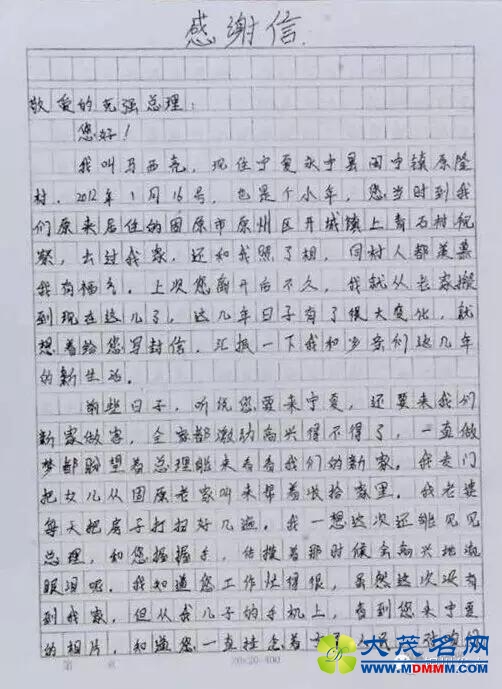 感谢信
敬爱的克强总理：
您好！
我叫马西克，现住宁夏永宁县闽宁镇原隆
村。2012年1月16号，也是个小年，您当时到我
们原来居住的固原市原州区开城镇上青石村视
察，去过我家，还和我照了相，同村人都羡慕
我有福气。上次您离开后不久，我就从老家搬
到现在这儿了，这几年日子有了很大变化，就
想着给您写封信，汇报一下我和乡亲们这几年
的新生活。
前些日子，听说您要来宁夏，还要来我们
新家做客，全家都激动高兴得不得了，一直做
梦都盼望着总理能来看看我们的新家。我专门
把女儿从固原老家叫来帮着收拾家里。我老婆
每天把房子打扫好几遍。我一想这次还能见见
总理，和您握握手，估摸着那时候会高兴地流
眼泪呢。我知道您工作忙得很，虽然这次没有
到我家，但从我儿子的手机上，看到您来宁夏
的相片，知道您一直挂念着
20×20=400
大茂名网
WWW.MDMMM.COM